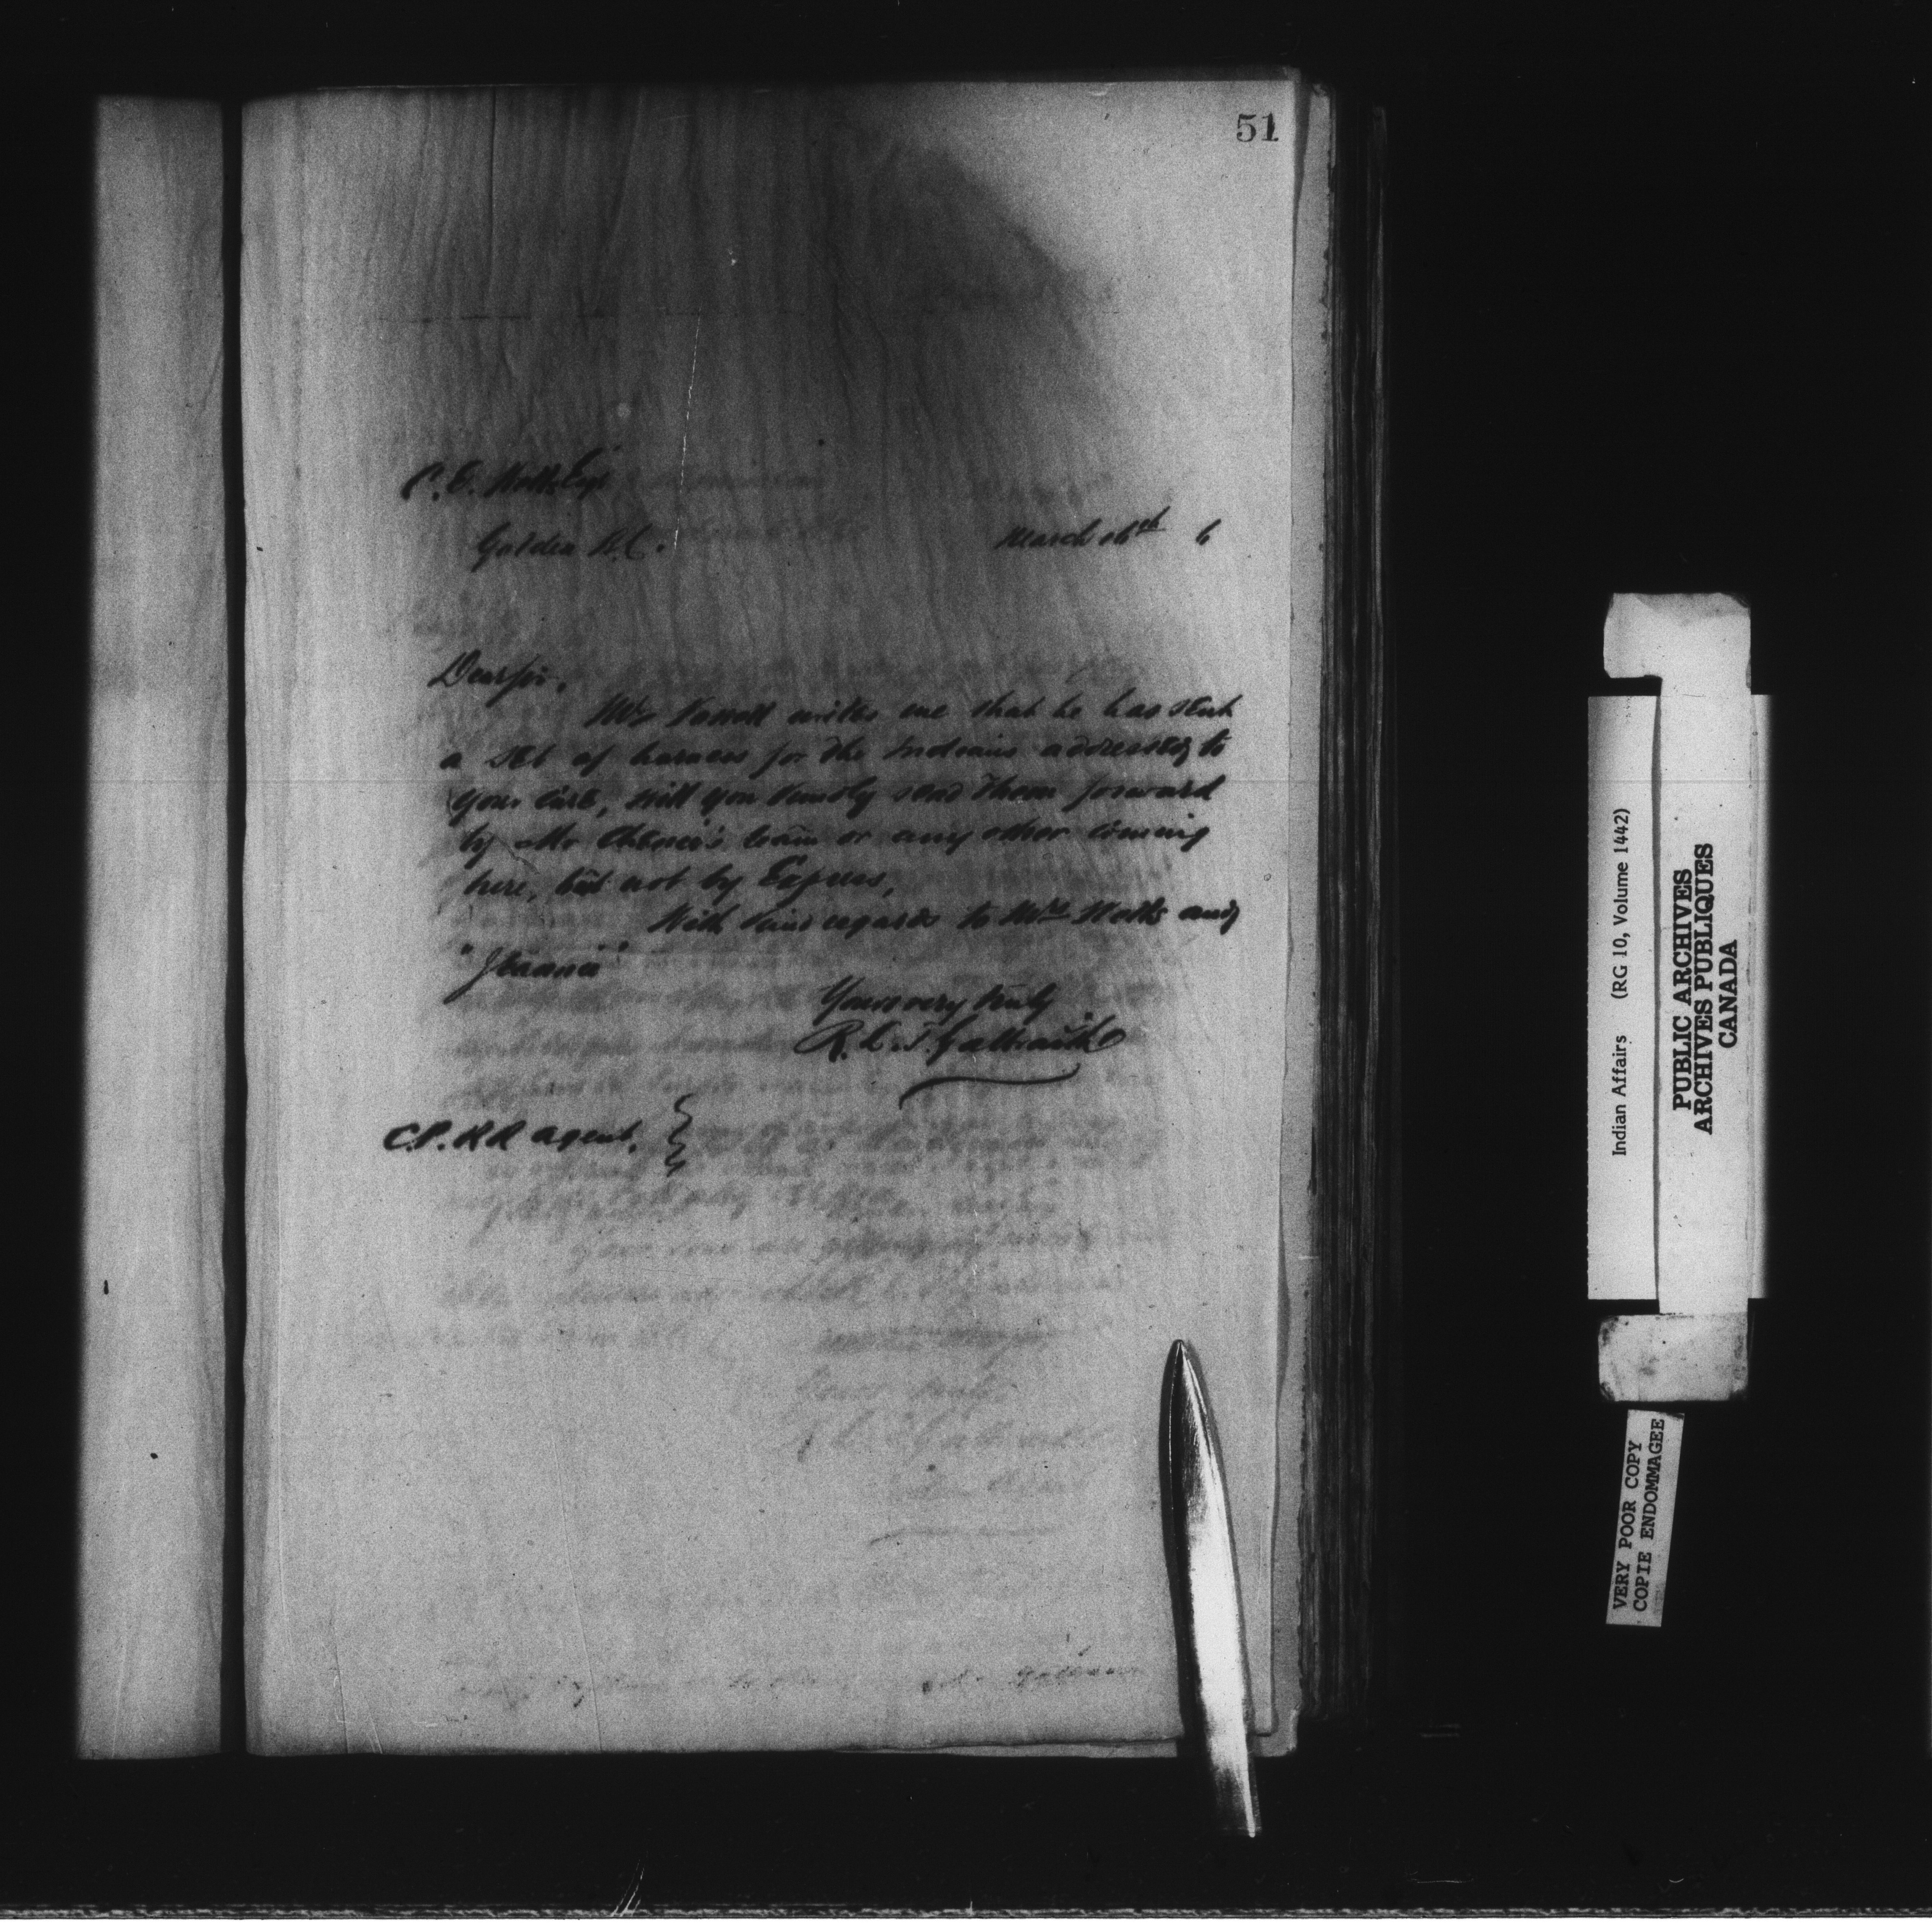 51
C. E. Wells Esqr
Golden B.C. March 16th 6
Dear Sir,
Mr Vowell writes me that he has sent
a set of harness for the Indians addressed to
your care, will you kindly send them forward
by Mr team or any other coming
here, but not by Express,
With kind regards to Mrs Wells and
Yours very truly
R. L. T. Galbraith
C.P.RR agent.
Indian Affairs (RG 10, Volume 1442)
PUBLIC ARCHIVES
ARCHIVES PUBLIQUES
CANADA
VERY POOR COPY
COPIE ENDOMMAGEE